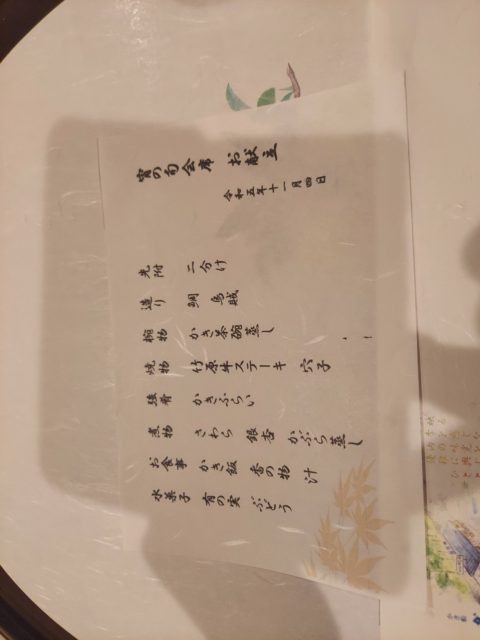 宵の旬会席 お献立
令和五年十一月四日
先附 二分け
造り 鯛 烏賊
椀物 かき茶碗蒸し
焼物 竹原牛ステーキ 穴子
強肴 かきふらい
煮物 さわら 銀杏 かぶら蒸し
お食事 かき飯 香の物 汁
水菓子 有の実 ぶどう